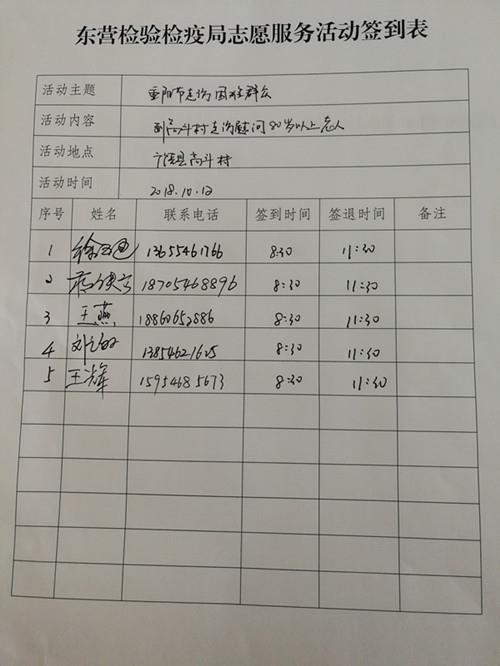 东营检验检疫局志愿服务活动签到表
活动主题 重阳节走访困难群众
活动内容 到高斗村走访慰问80岁以上老人
活动地点 高斗村
活动时间 2018.10.12
序号 姓名 联系电话 签到时间 签退时间 备注
1 徐 13655461766 8:30 11:30
2 18705468896 8:30 11:30
3 王燕 18860652886 8:30 11:30
4 刘 13854621615 8:30 11:30
5 王辉 15954685673 8:30 11:30